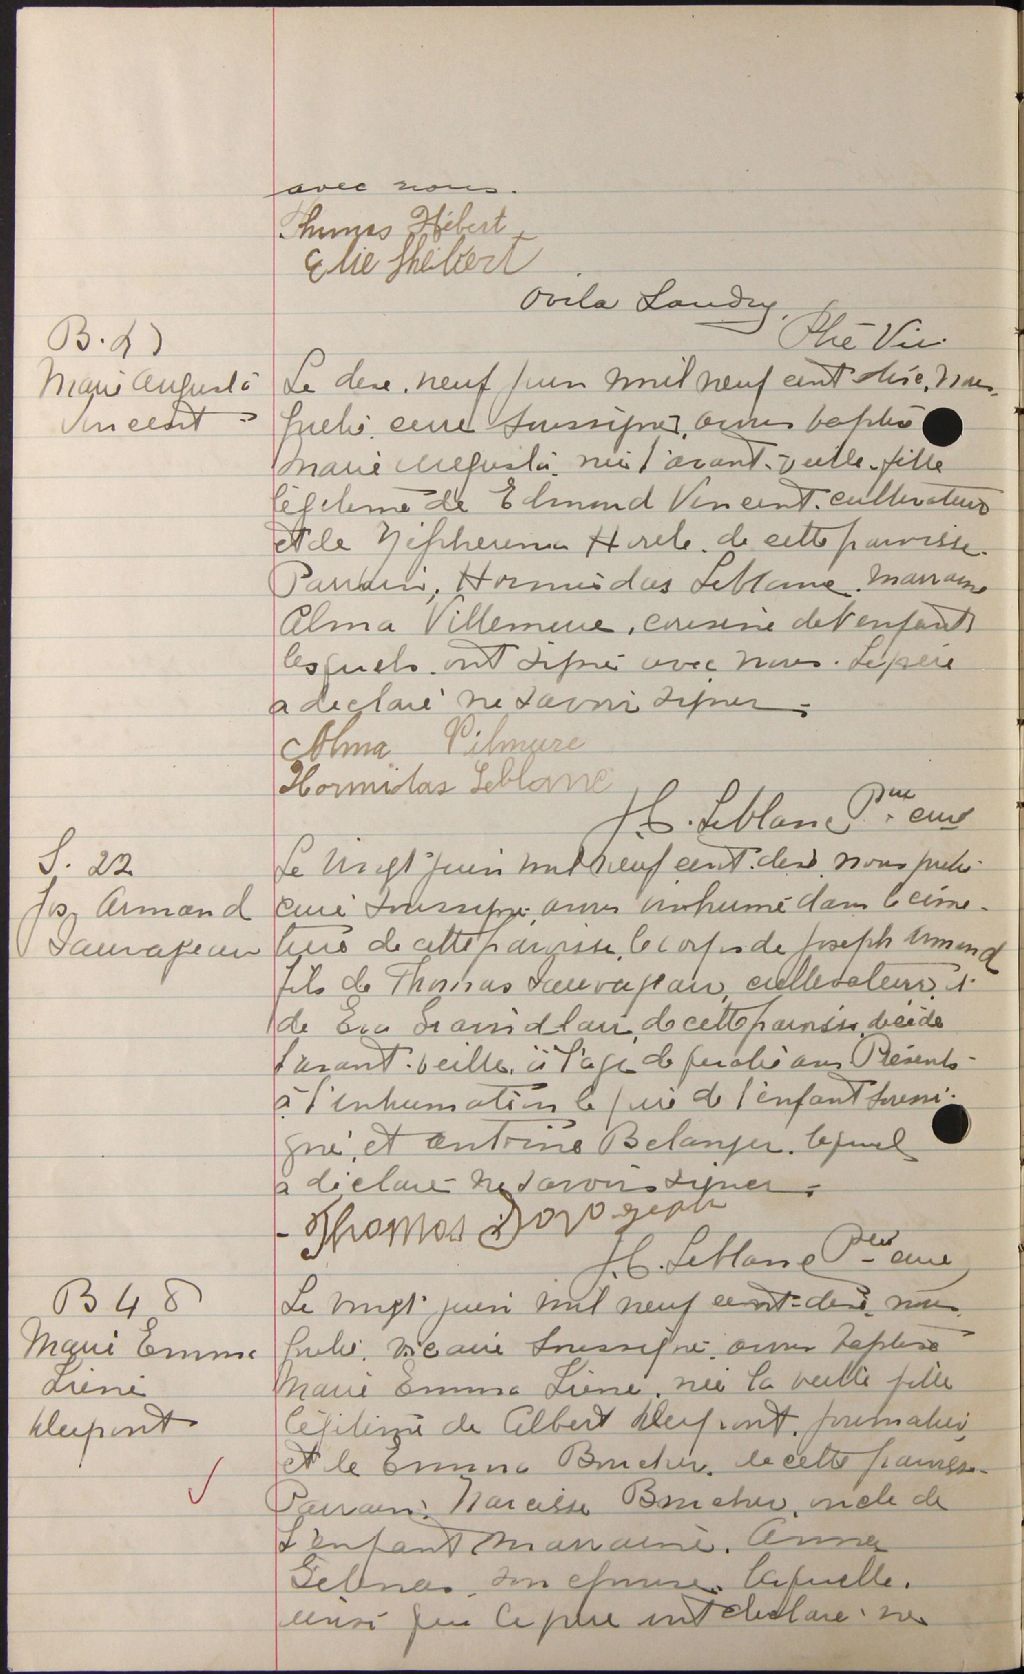 avec nous.
Thomas Hébert
Elie Hébert
Ovila Landry
Ptre Vic.
B. 47
Marie Augusta
Vincent
Le dix neuf juin mil neuf cent dix, nous
prêtre curé soussigné, avons baptisé
Marie Augusta, née l'avant-veille, fille
légitime de Edmond Vincent, cultivateur
et de de cette paroisse.
Parrain, Hormisdas Leblanc, marraine
Alma Villemure, cousine de l'enfant
lesquels ont signé avec nous. Le père
a déclaré ne savoir signer.
Alma Vilmure
Hormidas Leblanc
J. C. Leblanc Ptre curé
S. 22
Jos Armand
Sauvageau
Le vingt juin mil neuf cent dix nous prêtre
curé soussigné, avons inhumé dans le cime-
tière de cette paroisse, le corps de Joseph Armand
fils de Thomas Sauvageau, cultivateur, et
de Eva de cette paroisse, décédé
l'avant-veille, à l'âge de quatre ans. Présents
à l'inhumation le père de l'enfant soussi-
gné, et Antoine Belanger, lequel
a déclaré ne savoir signer.
Thomas
J. C. Leblanc Ptre curé
B 48
Marie Emma
Dupont
Le vingt juin mil neuf cent-dix, nous
prêtre, vicaire soussigné, avons baptisé
Marie Emma née la veille fille
légitime de Albert Dupont, journalier,
et de Emma Boucher, de cette paroisse.
Parrain, Narcisse Boucher, oncle de
l'enfant, marraine, Anna
Gelinas, son épouse, laquelle,
ainsi que le père ont déclaré ne